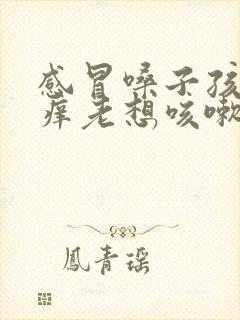 感冒嗓子孩
痒老想咳嗽
鳳青瑶